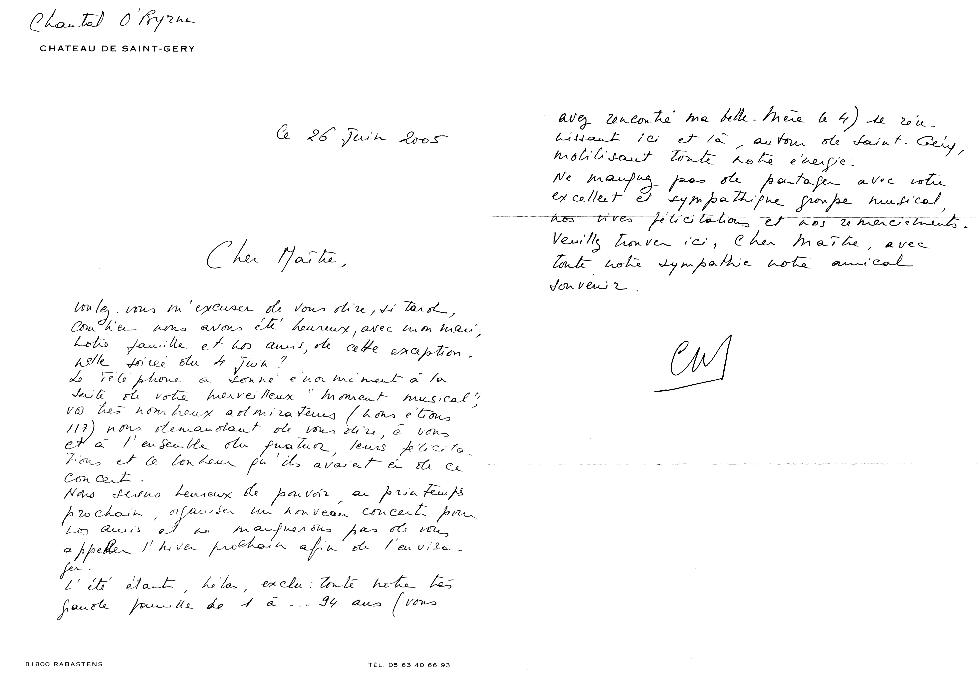 Chantal O'Byrne
CHATEAU DE SAINT-GERY
le 26 Juin 2005
Cher Maître,
voulez-vous m'excuser de vous dire, si tard,
combien nous avons été heureux, avec mon mari,
notre famille et nos amis, de cette exception-
nelle soirée du 4 Juin ?
Le Téléphone a sonné énormément à la
suite de votre merveilleux "moment musical",
vos très nombreux admirateurs (nous étions
117) nous demandant de vous dire, à vous
et à l'ensemble du quatuor, leurs félicita-
tions et le bonheur qu'ils avaient eu de ce
concert.
Nous serons heureux de pouvoir, au printemps
prochain, organiser un nouveau concert pour
nos amis et ne manquerons pas de vous
appeller l'hiver prochain afin de l'envisa-
ger.
L'été étant, hélas, exclu : toute notre très
grande famille de 1 à ... 94 ans (vous
81800 RABASTENS
TÉL. 05 63 40 66 93
avez rencontré ma belle-Mère le 4) se réu-
nissant ici et là, autour de Saint-Géry,
mobilisant toute notre énergie.
Ne manquez pas de partager avec votre
excellent et sympathique groupe musical,
nos vives félicitations et nos remerciements.
Veuillez trouver ici, Cher Maître, avec
toute notre sympathie notre amical
souvenir.